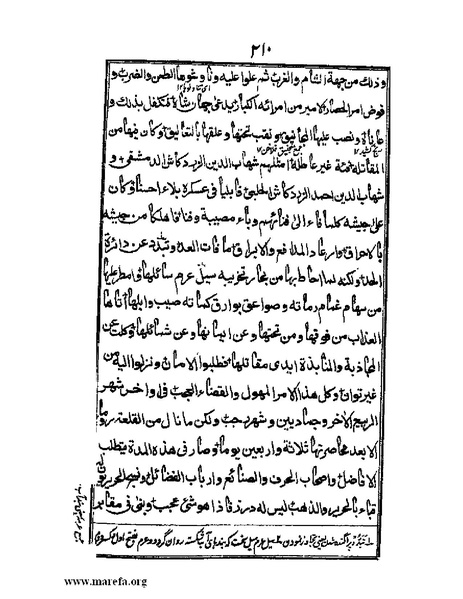 ٢١٠
وذلك من جهة الشام والغرب ثم علوا عليه وناوشوها الطعن والضرب و
فوض امر الحصار لامير من امرائه الكبار يدعى جهان شاه فتكفل بذلك و
عاناه ونصب عليها المجانيق ونقب تحتها وعلقها بالتعاليق وكان فيها من
المقاتلة فئة غير طائلة امثلهم شهاب الدين الزردكاش الدمشقى و
شهاب الدين احمد الزردكاش الحلبى فابليا فى عسكره بلاء احسنا وكان
على جيشه كلما فاء الى فنائهم وباء مصيبة وفنا فاهلكا من جيشه
بالاحراق وارعاد المدافع والابراق ما فات العد وتبدد عن دائرة
الحد ولكنه لما احاط بها من بحار تخريبه سيل عرم سائلها وامطر عليها
من سهام غمام رماته وصواعق بوارق كماته صيب وابلها أتاها
العذاب من فوقها ومن تحتها وعن ايمانها وعن شمائلها وكلت عن
المجاذبة والمنابذة ايدى مقاتلها فطلبوا الامان ونزلوا اليه من
غير توان وكل هذا الامر المهول والقضاء العجب فى اواخر شهر
الربيع الاخر وجماديين وشهر رجب ولكن ما نال من القلعة روما
الا بعد محاصرتها ثلاثة واربعين يوما وصار فى هذه المدة يتطلب
الافاضل واصحاب الحرف والصنائع وارباب الفضائل ونسج الحريريون له
قباء بالحرير والذهب ليس له درز فاذا هو شئ عجب وبنى فى مقابر
www.marefa.org